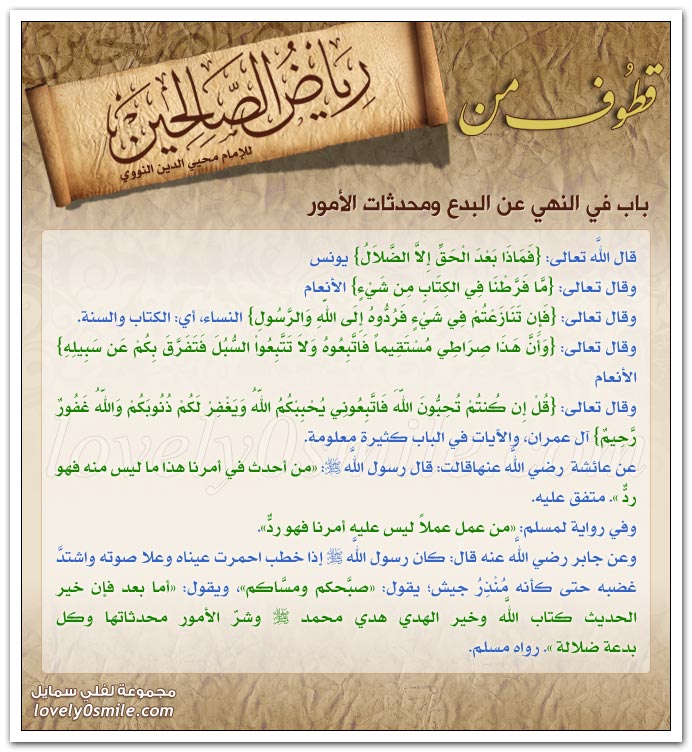 قطوف من
رياض الصالحين
للإمام محيي الدين النووي
باب في النهي عن البدع ومحدثات الأمور
قال اللَّه تعالى: {فَمَاذَا بَعْدَ الْحَقِّ إِلاَّ الضَّلاَلُ} يونس
وقال تعالى: {مَّا فَرَّطْنَا فِي الكِتَابِ مِن شَيْءٍ} الأنعام
وقال تعالى: {فَإِن تَنَازَعْتُمْ فِي شَيْءٍ فَرُدُّوهُ إِلَى اللّهِ وَالرَّسُولِ} النساء، أي: الكتاب والسنة.
وقال تعالى: {وَأَنَّ هَذَا صِرَاطِي مُسْتَقِيماً فَاتَّبِعُوهُ وَلاَ تَتَّبِعُواْ السُّبُلَ فَتَفَرَّقَ بِكُمْ عَن سَبِيلِهِ}
الأنعام
وقال تعالى: {قُلْ إِن كُنتُمْ تُحِبُّونَ اللّهَ فَاتَّبِعُونِي يُحْبِبْكُمُ اللّهُ وَيَغْفِرْ لَكُمْ ذُنُوبَكُمْ وَاللّهُ غَفُورٌ
رَّحِيمٌ} آل عمران، والآيات في الباب كثيرة معلومة.
عن عائشة رضي اللَّه عنهاقالت: قال رسول اللَّه ﷺ: «من أحدث في أمرنا هذا ما ليس منه فهو
ردٌّ ». متفق عليه.
وفي رواية لمسلم: «من عمل عملاً ليس عليه أمرنا فهو ردٌّ».
وعن جابر رضي اللَّه عنه قال: كان رسول اللَّه ﷺ إذا خطب احمرت عيناه وعلا صوته واشتدَّ
غضبه حتى كأنه مُنْذِرُ جيش؛ يقول: «صبَّحكم ومسَّاكم»، ويقول: «أما بعد فإن خير
الحديث كتاب اللَّه وخير الهدي هدي محمد ﷺ وشرّ الأمور محدثاتها وكل
بدعة ضلالة ». رواه مسلم.
lovely0smile.com
مجموعة لفلي سمايل
lovely0smile.com